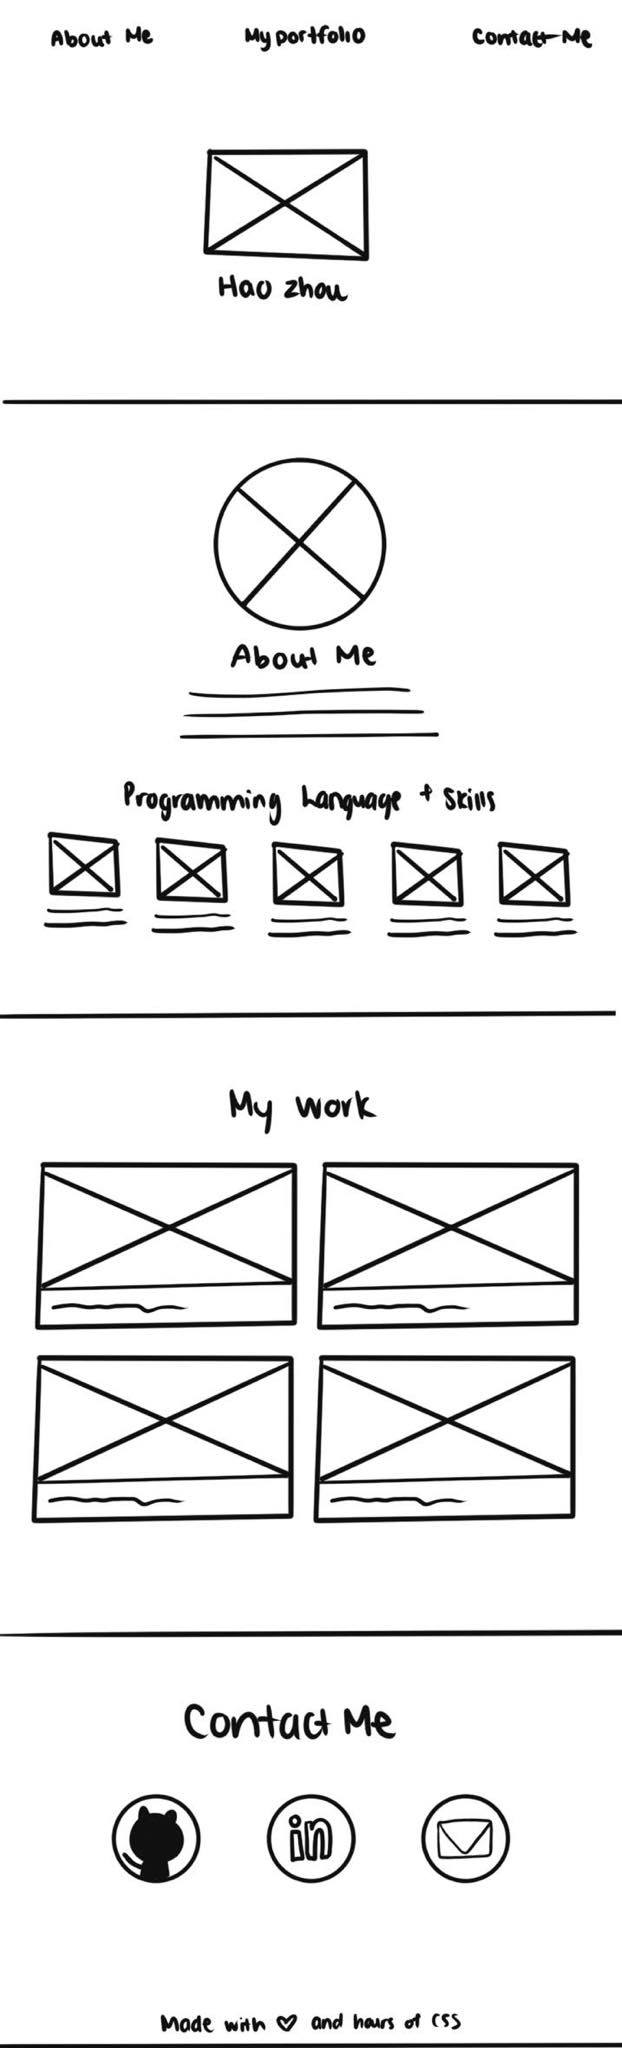 About Me My portfolio Contact Me
Hao Zhou
About Me
Programming Language + Skills
My Work
Contact Me
in
Made with ♡ and hours of CSS